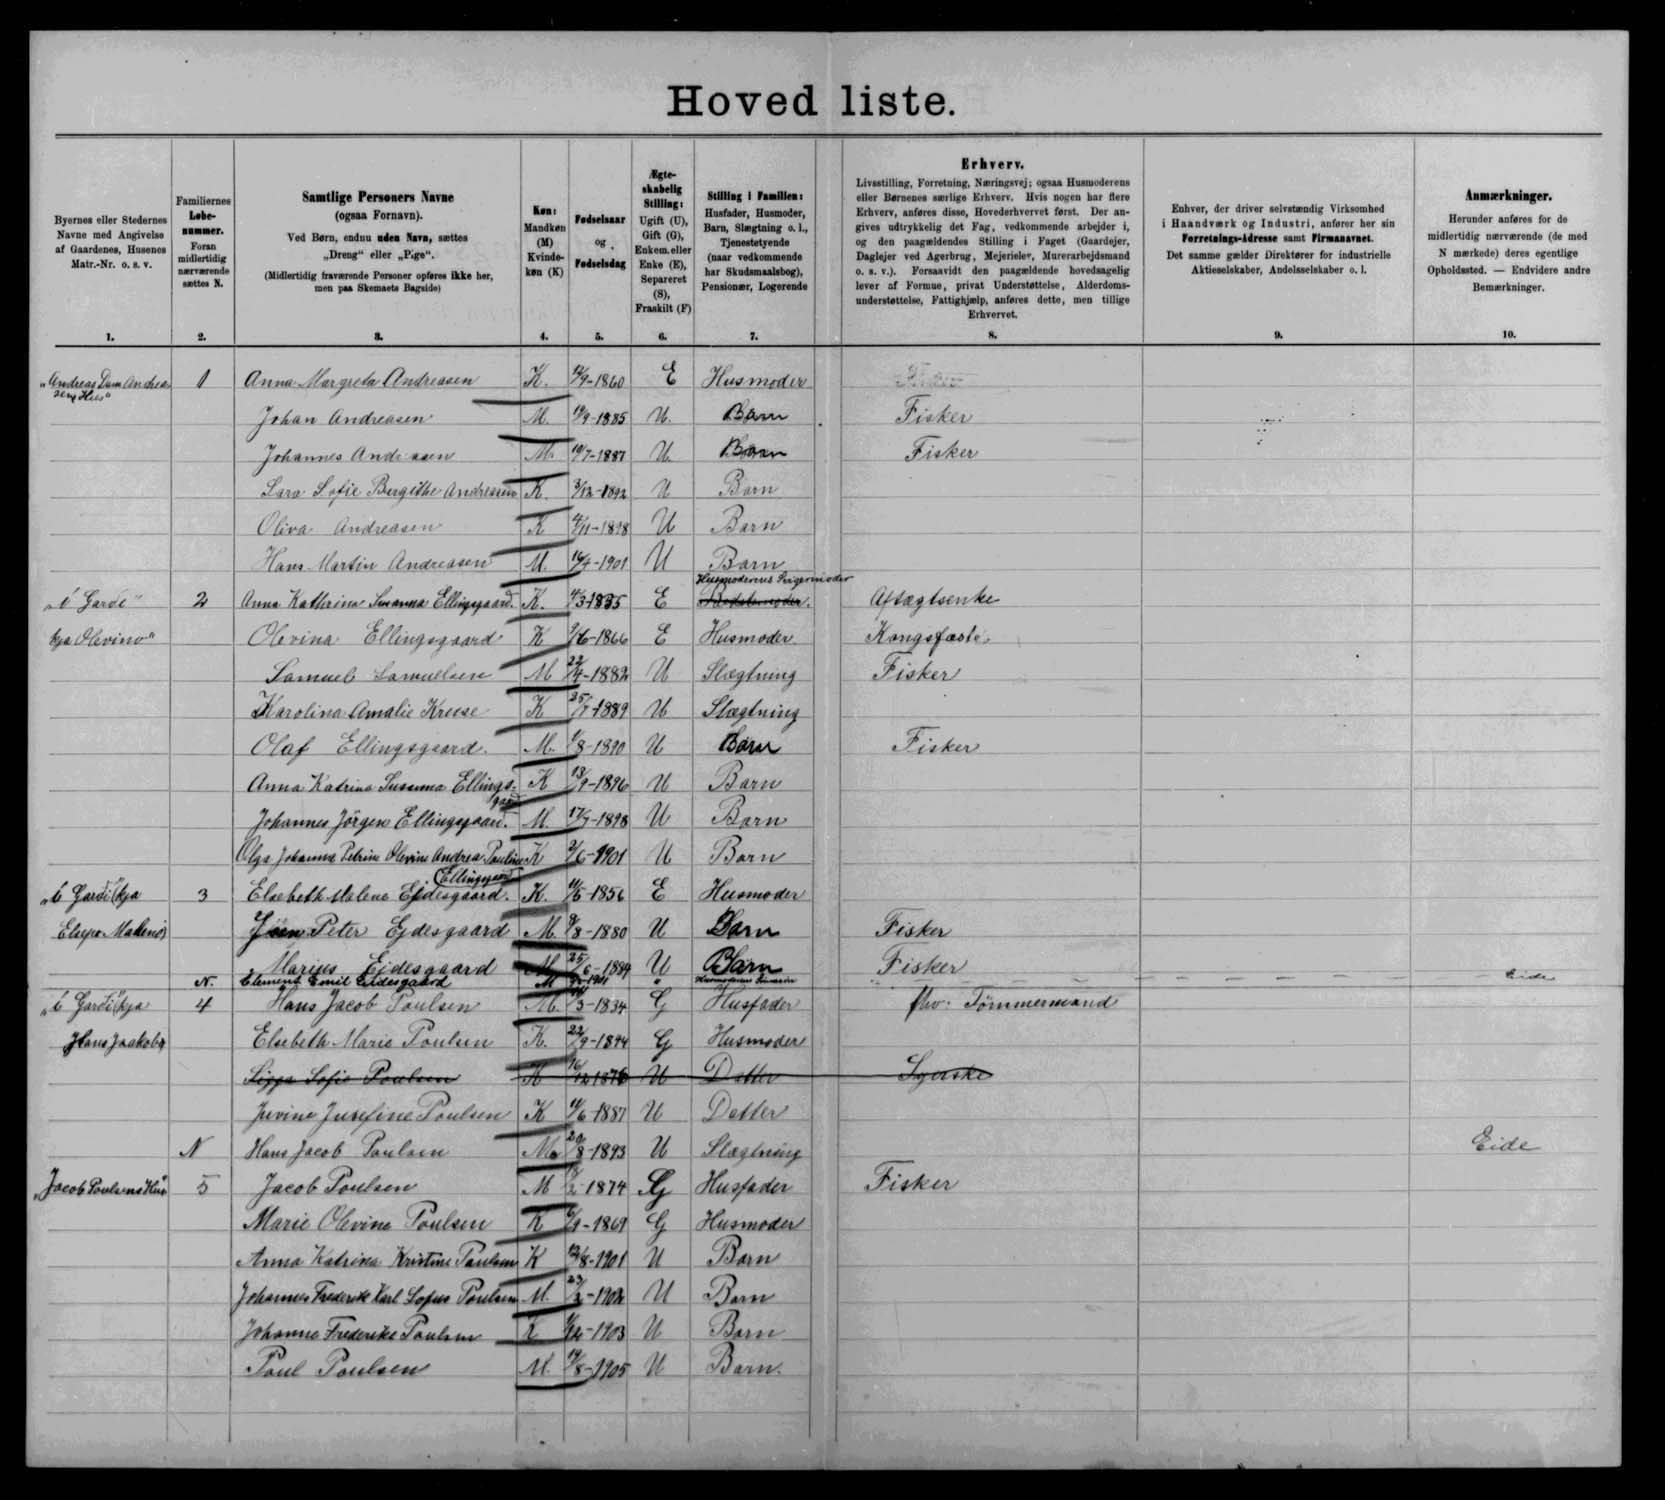 Hoved liste.
Byernes eller Stedernes Navne med Angivelse af Gaardenes, Husenes Matr.-Nr. o. s. v.
Familiernes Løbenummer. Foran midlertidig nærværende sættes N.
Samtlige Personers Navne
(ogsaa Fornavn).
Ved Børn, endnu uden Navn, sættes
„Dreng“ eller „Pige“.
(Midlertidig fraværende Personer opføres ikke her, men paa Skemaets Bagside)
Køn: Mandkøn (M) Kvindekøn (K)
Fødselsaar og Fødselsdag
Ægteskabelig Stilling: Ugift (U), Gift (G), Enkem. eller Enke (E), Separeret (S), Fraskilt (F)
Stilling i Familien: Husfader, Husmoder, Barn, Slægtning o. l., Tjenestetyende (naar vedkommende har Skudsmaalsbog), Pensionær, Logerende
Erhverv.
Livsstilling, Forretning, Næringsvej; ogsaa Husmoderens
eller Børnenes særlige Erhverv. Hvis nogen har flere
Erhverv, anføres disse, Hovederhvervet først. Der an-
gives udtrykkelig det Fag, vedkommende arbejder i,
og den paagældendes Stilling i Faget (Gaardejer,
Daglejer ved Agerbrug, Mejerielev, Murerarbejdsmand
o. s. v.). Forsaavidt den paagældende hovedsagelig
lever af Formue, privat Understøttelse, Alderdoms-
understøttelse, Fattighjælp, anføres dette, men tillige
Erhvervet.
Enhver, der driver selvstændig Virksomhed
i Haandværk og Industri, anfører her sin
Forretnings-Adresse samt Firmanavnet.
Det samme gælder Direktører for industrielle
Aktieselskaber, Andelsselskaber o. l.
Anmærkninger.
Herunder anføres for de
midlertidig nærværende (de med
N mærkede) deres egentlige
Opholdssted. — Endvidere andre
Bemærkninger.
1. 2. 3. 4. 5. 6. 7. 8. 9. 10.
„Andreas Dam Andreasens Hus“ 1 Anna Margreta Andreasen K. 1860 E Husmoder
Johan Andreasen M. 19/9-1885 U. Barn Fisker
Johannes Andreasen M. 19/7-1887 U. Barn Fisker
Sara Sofie Bergithe Andreasen K. 3/12-1892 U Barn
Oliva Andreasen K 4/11-1898 U Barn
Hans Martin Andreasen M. 1901 U Barn
Husmoderens Svigermoder
„í Garði“ 2 Anna Kathrina Susanna Ellingsgaard. K. E Aftægtsenke
hja Olevinu“ Olevina Ellingsgaard K 1866 E Husmoder Kongsfæste
Samuel Samuelsen M 1882 U Slægtning Fisker
Karolina Amalie Kruse K 1889 U Slægtning
Olaf Ellingsgaard. M. 1/8-1890 U Barn Fisker
Anna Katrina Susanna Ellingsgaard K 13/9-1896 U Barn
Johannes Jörgen Ellingsgaard. M. 17/7-1898 U Barn
Olga Johanna Petrine Olevine Andrea Pauline K 1901 U Barn
(Ellingsgaard
„í Garði“ hja 3 Elsebeth Malene Ejdesgaard. K. 11/5-1856 E Husmoder
Elsepu Malenu) Peter Ejdesgaard M. 9/8-1880 U Barn Fisker
Marius Ejdesgaard M 25/6-1889 U Barn Fisker
N. Clement Emil Eidesgaard M 1901 Eide
„í Garði“ hja 4 Hans Jacob Poulsen M. 1834 G Husfader fhv. Tømmermand
Hans Jaakobi Elsebeth Maria Poulsen K. 22/9-1844 G Husmoder
Sigga Sofie Poulsen K 16/12 1876 U Datter Syerske
Juvine Josefine Poulsen K 11/6-1887 U Datter
N Hans Jacob Poulsen M 20/8-1893 U Slægtning Eide
„Jacob Poulsens Hus“ 5 Jacob Poulsen M 1874 G Husfader Fisker
Marie Olevine Poulsen K 1869 G Husmoder
Anna Katrina Kristine Poulsen K 12/8-1901 U Barn
Johannes Frederik Karl Sofus Poulsen M. 1902 U Barn
Johanne Frederike Poulsen K 1903 U Barn
Poul Poulsen M. 19/8-1905 U Barn.